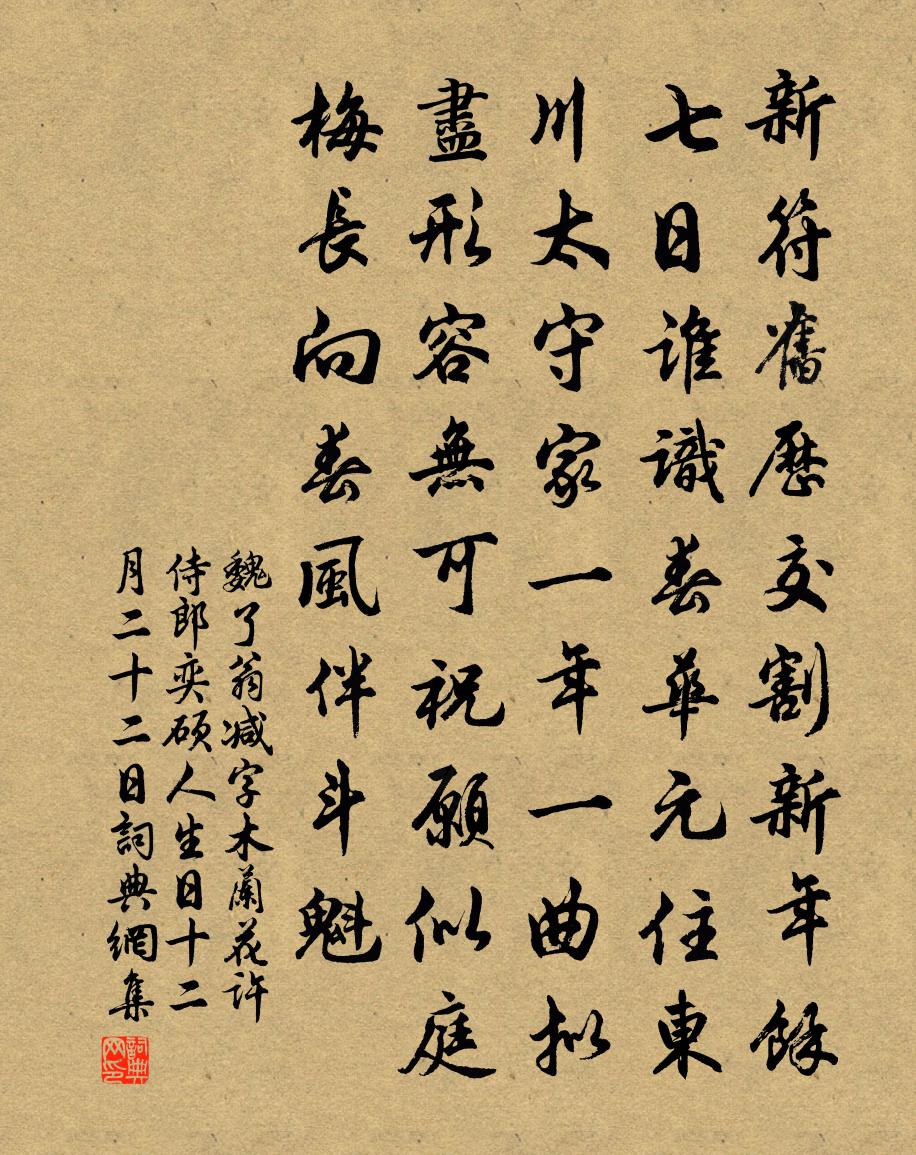 新符舊歷交割新年餘
七日誰識春華元住東
川太守家一年一曲擬
盡形容無可祝願似庭
梅長向春風伴斗魁
魏了翁减字木蘭花許
侍郎奕碩人生日十二
月二十二日詞典網集
詞典网印